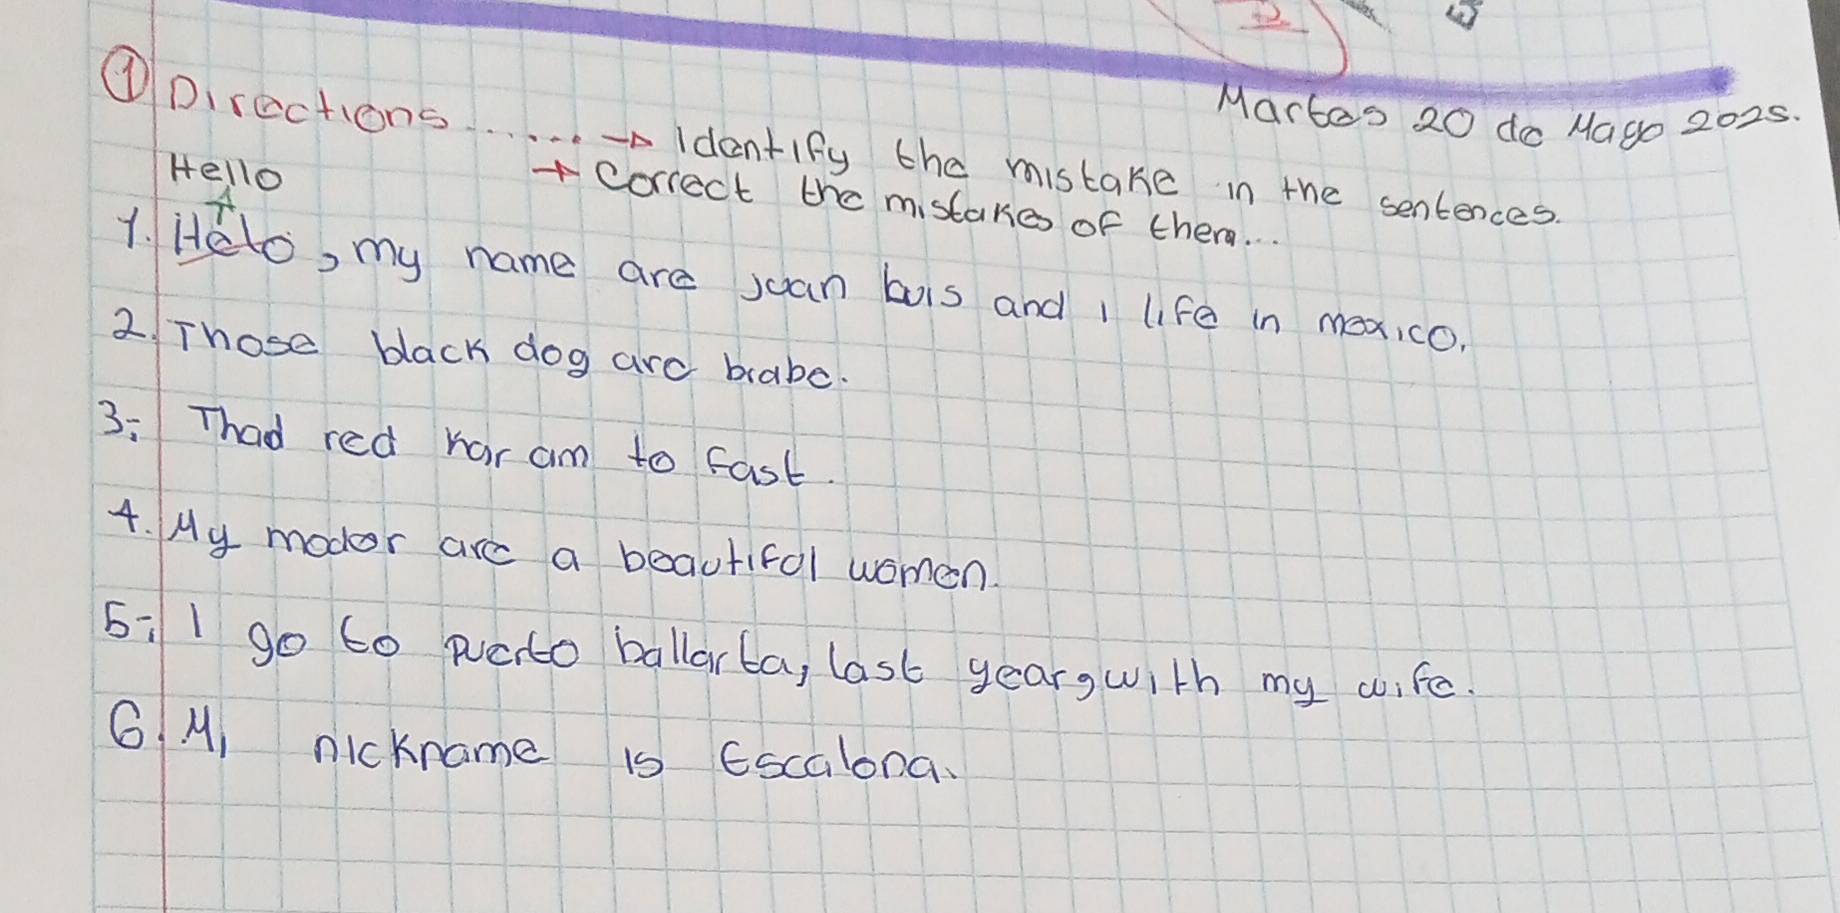 Martes 20 de Mayo 2025.
1 Directions ...... → Identify the mistake in the sentences.
→ Correct the mistakes of them...
Hello
1. Helo, my name are juan luis and i life in mexico.
2. Those black dog are brabe.
3.- Thad red kar am to fast.
4. My moder are a beautifol women.
5.- I go to puerto ballarta, last year, with my wife.
6. Mi nickname is Escalona.